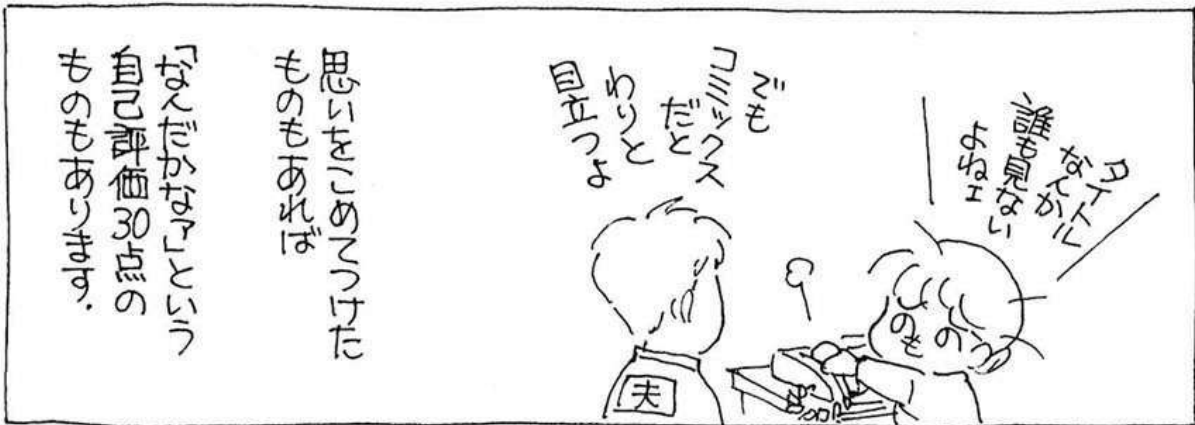 タイトル
なんか
誰も見ない
よねェ
でも
コミックス
だと
わりと
目立つよ
夫
思いをこめてつけた
ものもあれば
「なんだかなァ」という
自己評価30点の
ものもあります.